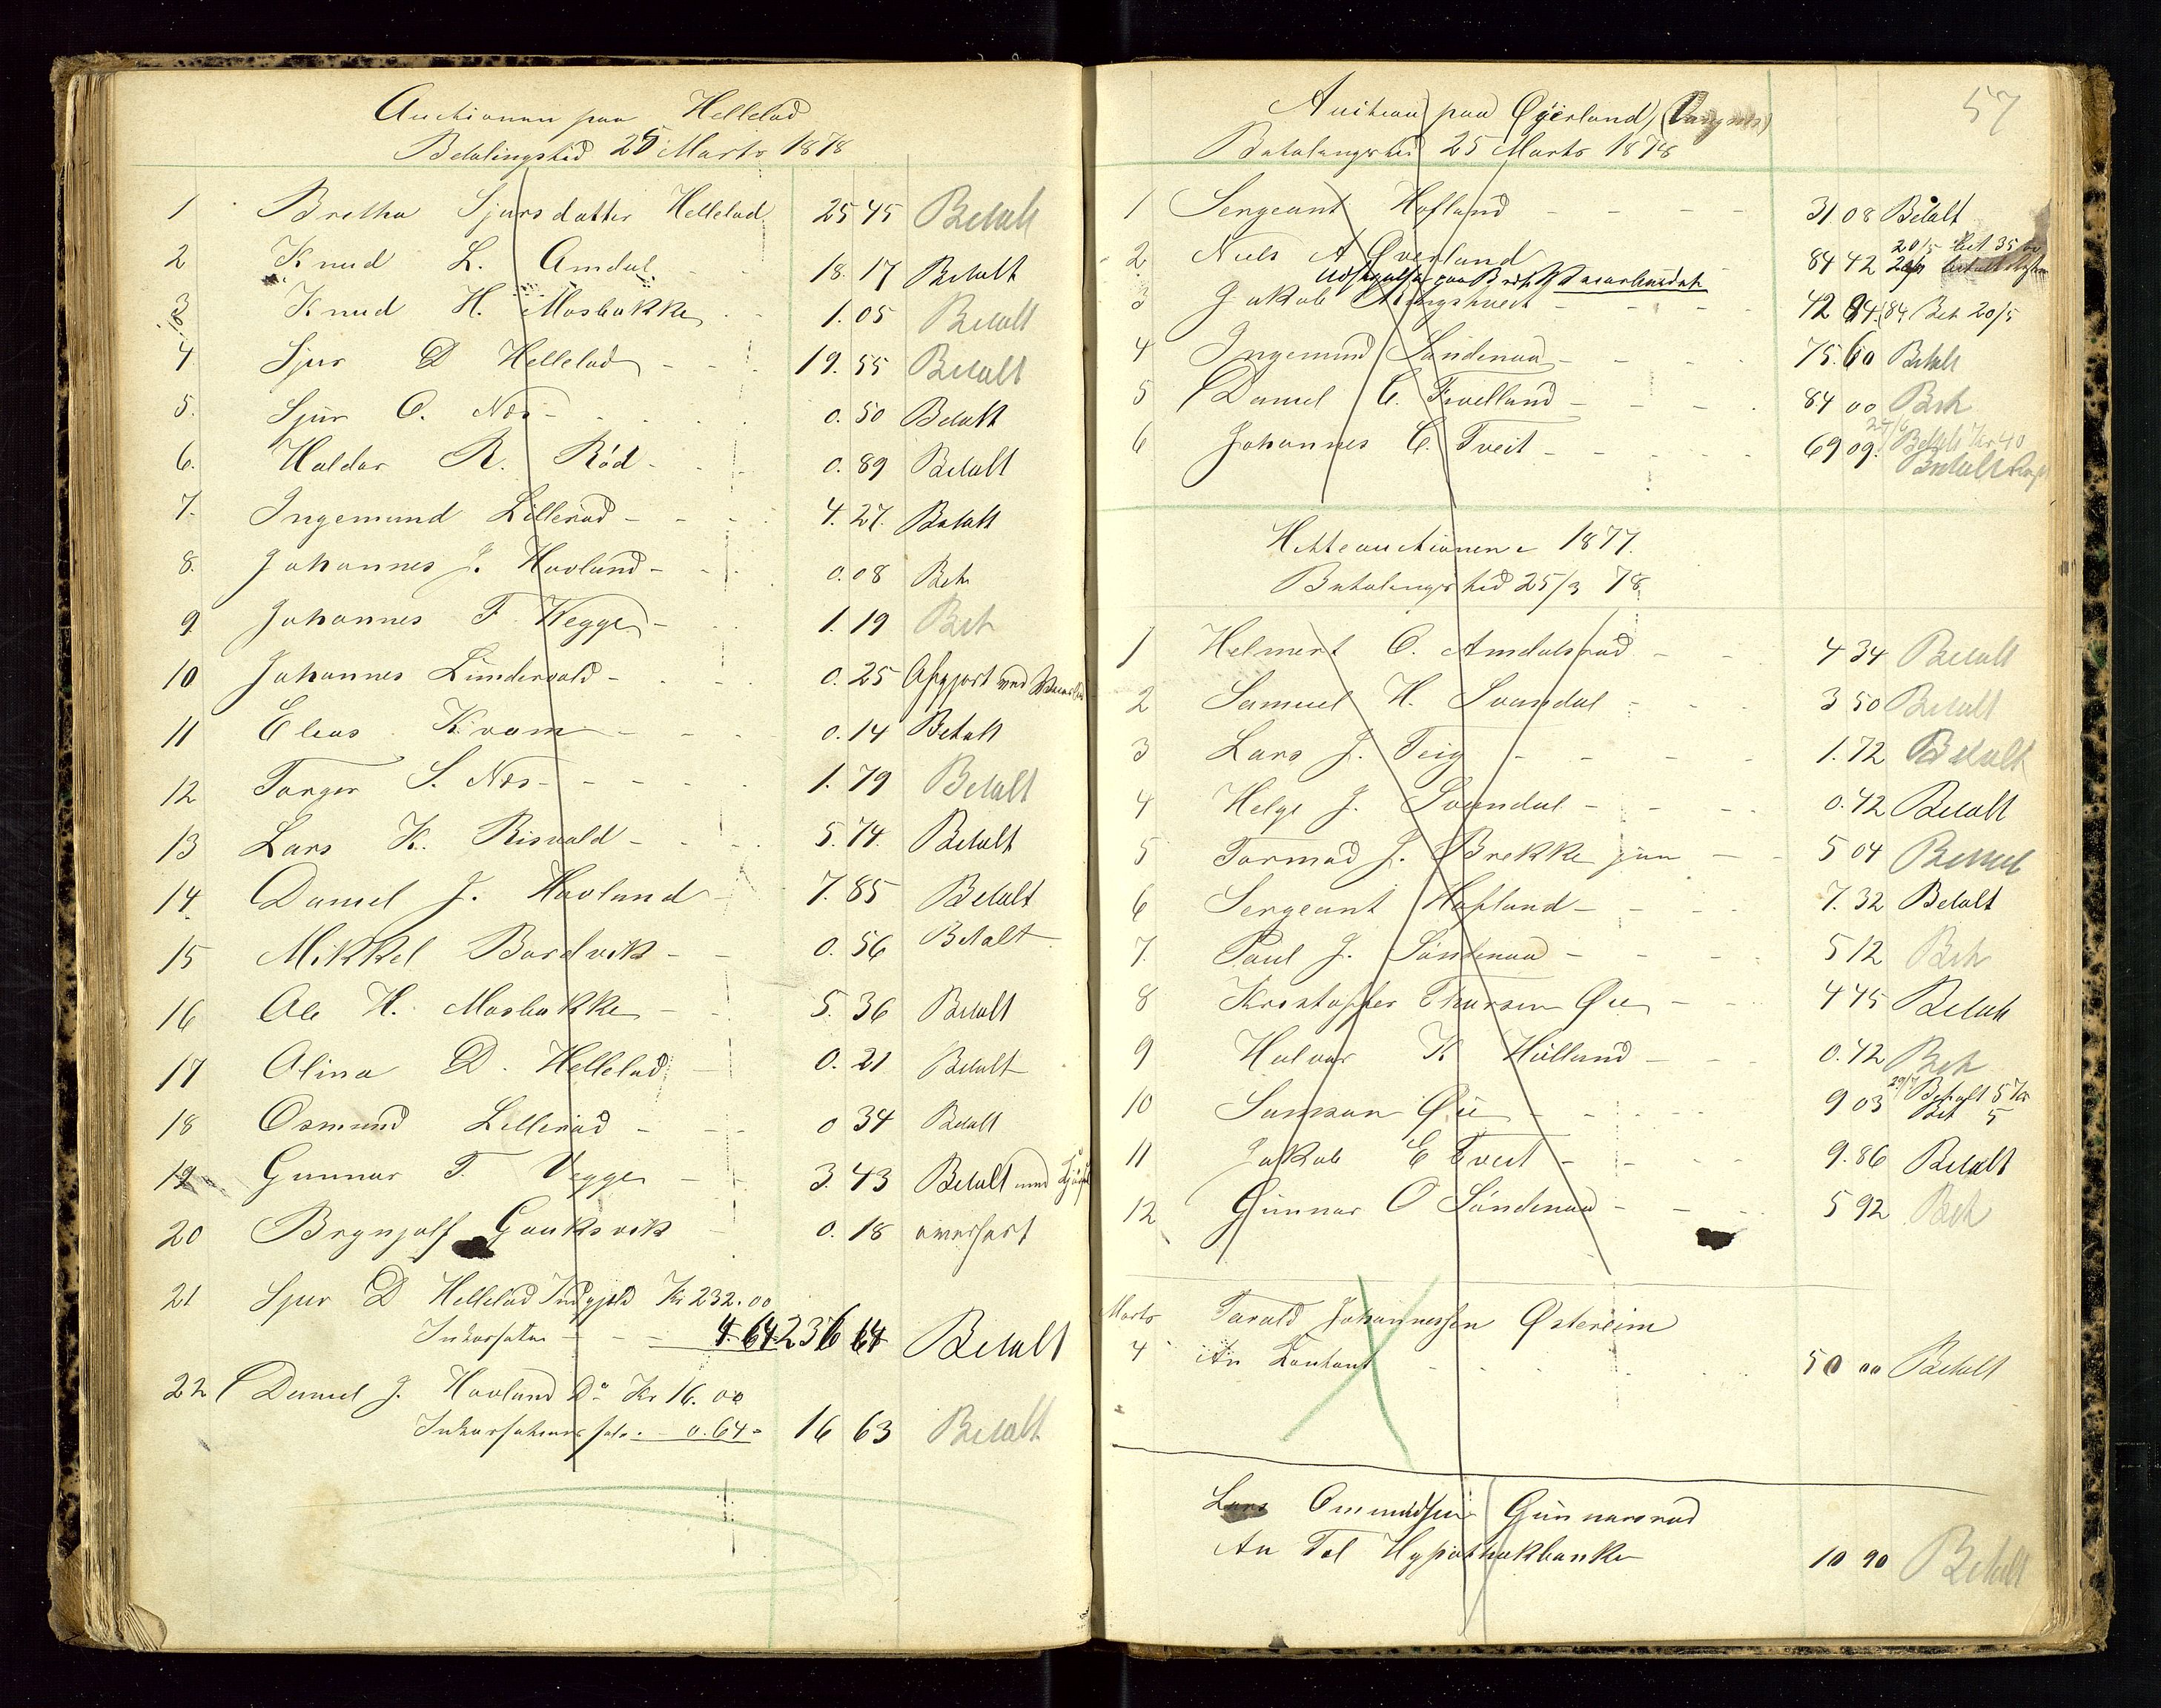 Auctionen paa Hellelad
Betalingstid 25 Marts 1878
1 Bretha Sjursdatter Hellelad 25 45 Betalt
2 Knud L. Amdal 18. 17 Betalt
3 Knud H. Mosbakke 1. 05 Betalt
4 Sjur D Hellelad 19. 55 Betalt
5. Sjur O. Næs 0. 50 Betalt
6. Haldor R. Röd 0. 89 Betalt
7. Ingemund Lilleröd 4. 27. Betalt
8. Johannes J. Havland 0. 08 Bet
9. Johannes F. Wegge 1. 19 Bet
10 Johannes Lindervold 0. 25 Afgjort med
11 Elias Kvam 0. 14 Betalt
12 Torger S. Næs 1. 79 Betalt
13 Lars K. Risvold 5. 74. Betalt
14. Daniel J. Havland 7. 85 Betalt
15 Mikkel Bordvik 0. 56 Betalt
16 Ole H. Mosbakke 5. 36 Betalt
17 Olina D. Hellelad 0. 21 Betalt
18 Osmund Lilleröd 0 34 Betalt
19 Gunnar T. Vegge 3. 43 Betalt med
20 Brynjolf Gauksvik 0. 18 overfört
21 Sjur D Hellelad Indgjæld Kr 232. 00
Inkassation 4. 64 236 64 Betalt
22 Daniel J. Havland Do Kr 16. 00
0. 64 16 63 Betalt
57
Auction paa Öyerland
Betalingstid 25 Marts 1878
1 Sergeant Hofland 31 08 Betalt
2 Niels A Øverland 84 42 20/5 bet 35
3 Jakob 42 84 (84 Bet 20/5
4 Ingemund Söndenaa 75. 60 Betalt
5 Daniel C. Fivelland 84 00 Bet
6 Johannes C. Tveit 69 09. Betalt Kr 40
Betalt
Hitteauctionene 1877.
Betalingstid 25/3 78
1 Helmert O. Amdalsröd 4 34 Betalt
2 Samuel H. Svandal 3 50 Betalt
3 Lars J. Teig 1. 72 Betalt
4 Helge J. Svandal 0. 42 Betalt
5 Tormod J. Brekke jun 5 04 Betalt
6 Sergeant Hofland 7. 32 Betalt
7. Paul J. Söndenaa 5 12 Bet
8 Kristoffer Thorsen Øie 4 45 Betalt
9 Halvor K Hålland 0. 42 Bet
10 Samson Øie 9 03 29/7 Betalt 5 Kr
Bet 5
11 Jakob E Tveit 9. 86 Betalt
12 Gunnar O Söndenaa 5 92 Bet
Marts Tarald Johannessen Østereim
4 An Kontant 50 00 Betalt
Lars Ommundsen Gunnarsröd
An Tal Hypothekbanken 10 90 Betalt